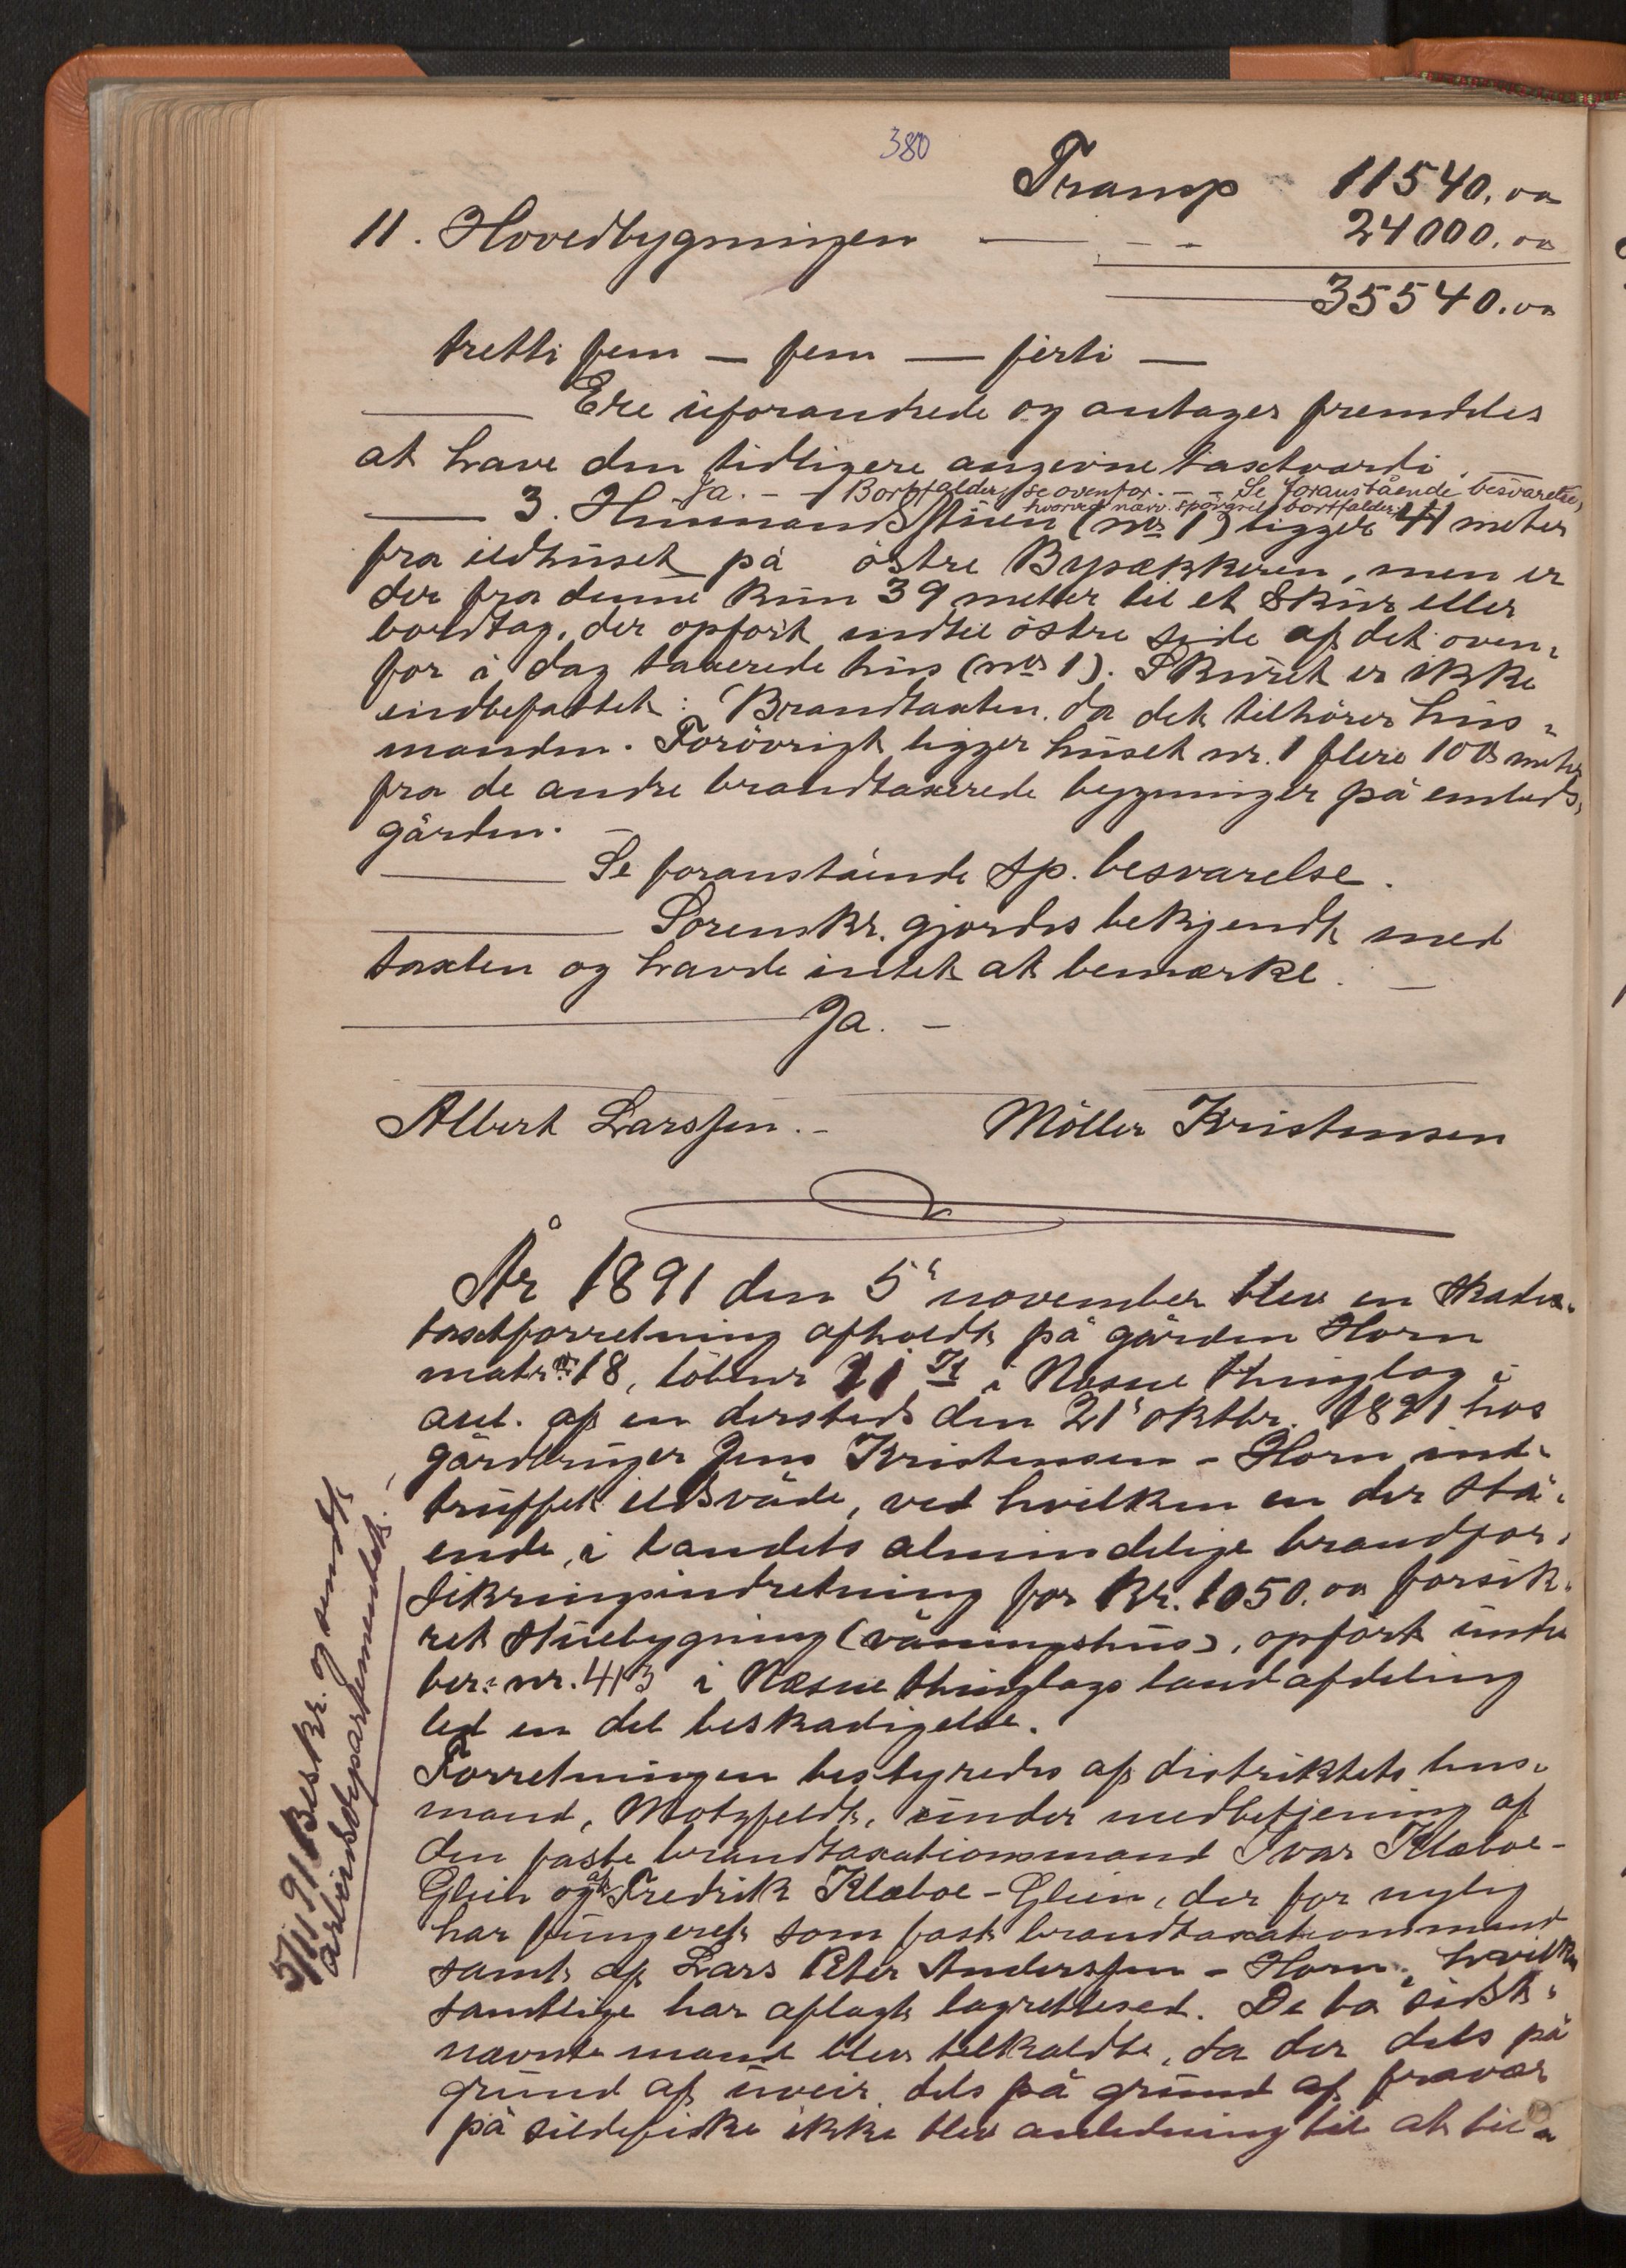 380
Transp 11540.00
11. Hovedbygningen — - - 24000.00
35540.00
tretti fem — fem — førti —
Ere uforandrede og antages fremdeles
at have den tidligere angivne taxtværdi.
Ja. - - Bortfalder, se ovenfor. - - Se foranstående besvarelse,
hvorved nærv. spörgsel bortfalder.
3. Husmandsstuen (nr 1) ligger 41 meter
fra ildhuset på östre Bypækkeren, men er
der fra denne kun 39 meter til et Skur eller
bordtag, der opført indtil östre side af det oven-
for i dag taxerede hus (nr 1). Skuret er ikke
indbefattet i Brandtaxten, da det tilhörer hus-
manden. Forövrigt ligger huset nr. 1 flere 100 meter
fra de andre brandtaxerede bygninger på embeds-
gården. —
Se foranstående sp. besvarelse.
Sorenskr. gjordes bekjendt med
taxten og havde intet at bemærke. —
Ja. —
Albert Larssen. - Möller Kristensen
År 1891 den 5' november blev en skades-
taxtforretning afholdt på gården Horn
matr. nr 18, löbenr 21 i Næsne thinglag i
anl. af en dersteds den 21' oktbr. 1891 hos
gårdbruger Jens Kristensen - Horn ind-
truffet ildsvåde, ved hvilken en der stå-
ende, i landets almindelige brandfor-
sikringsindretning for Kr. 1050.00 forsik-
ret stuebygning (våningshus), opført under
ber: nr. 413 i Næsne thinglags landafdeling
led en del beskadigelse.
Forretningen bestyredes af distriktets lens-
mand, Motzfeldt, under medbetjening af
den faste brandtaxationsmand Ivar Klæboe-
Glein og af Fredrik Klæboe - Glein, der for nylig
har fungeret som fast brandtaxationsmand
samt af Lars Peter Anderssen - Horn, hvilke
samtlige har aflagt lagrettesed. De to sidst-
nævnte mænd blev tilkaldte, da der dels på
grund af uveir dels på grund af fravær
på sildefiske ikke blev anledning til at til-
5/11 91 Beskr. og sendt
arbeidsdepartementet.